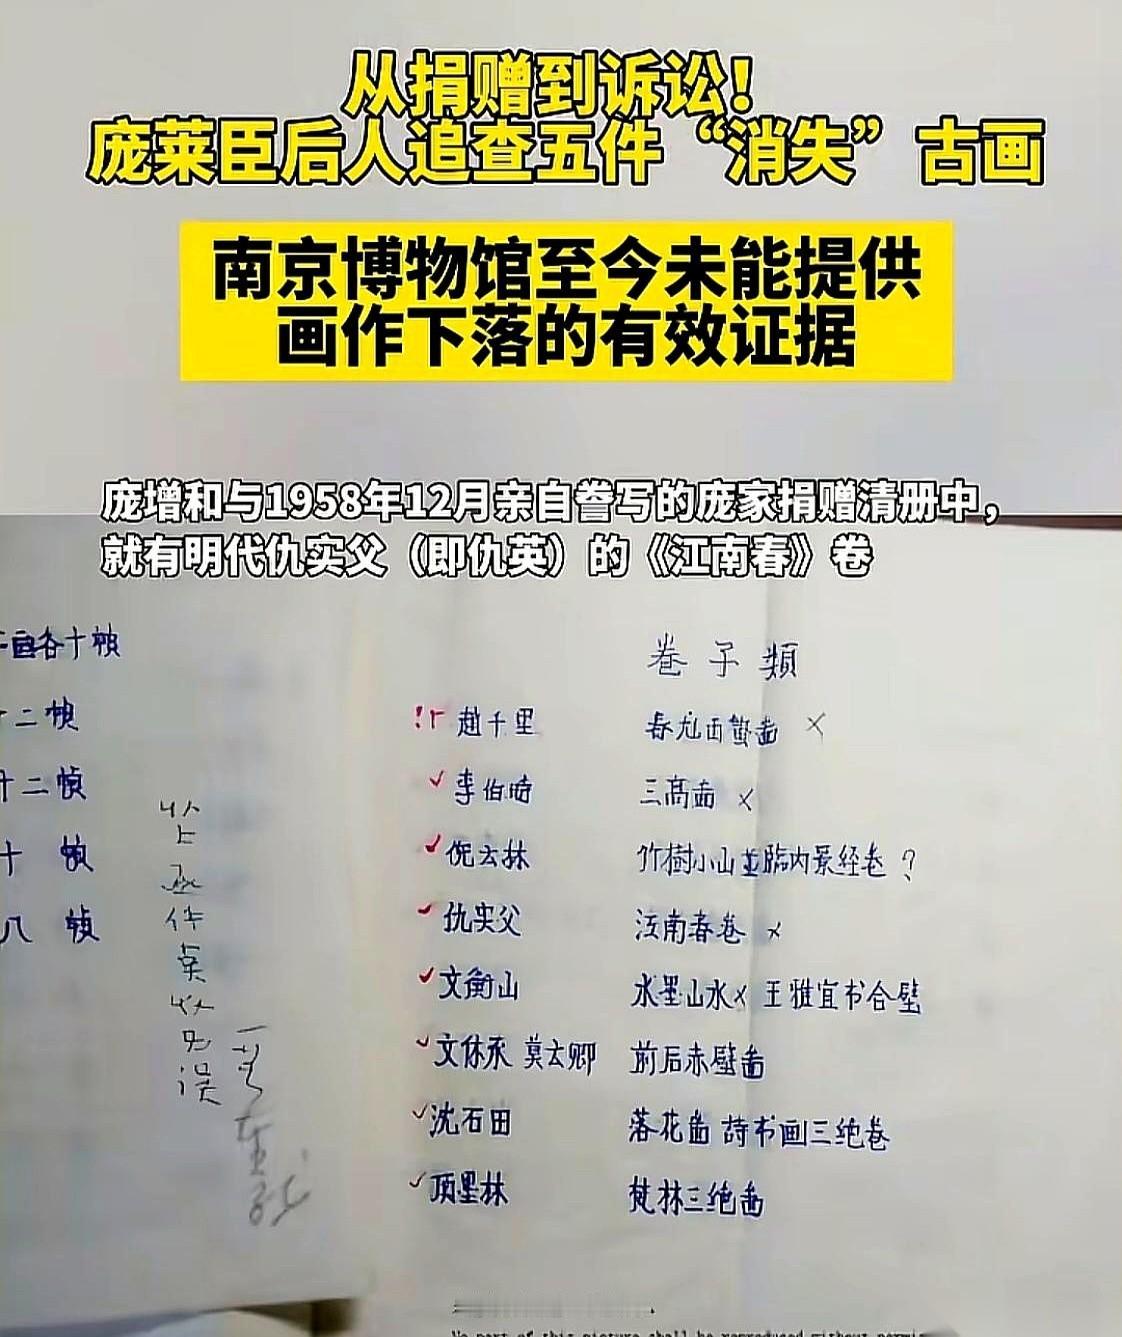 从捐赠到诉讼！
庞莱臣后人追查五件“消失”古画
南京博物馆至今未能提供
画作下落的有效证据
庞增和与1958年12月亲自誊写的庞家捐赠清册中，
就有明代仇实父（即仇英）的《江南春》卷
画各十帧
十二帧
十二帧
十 帧
八 帧
卷子類
赵千里 春龙 蛰啚 ×
李伯時 三高啚 ×
倪云林 竹樹小山並臨内景经卷 ?
仇实父 江南春卷 ×
文衡山 水墨山水× 王雅宜书合壁
文休承 莫云卿 前后赤壁啚
沈石田 落花啚 詩书画三绝卷
項墨林 梵林三绝啚
No part of this picture shall be reproduced without